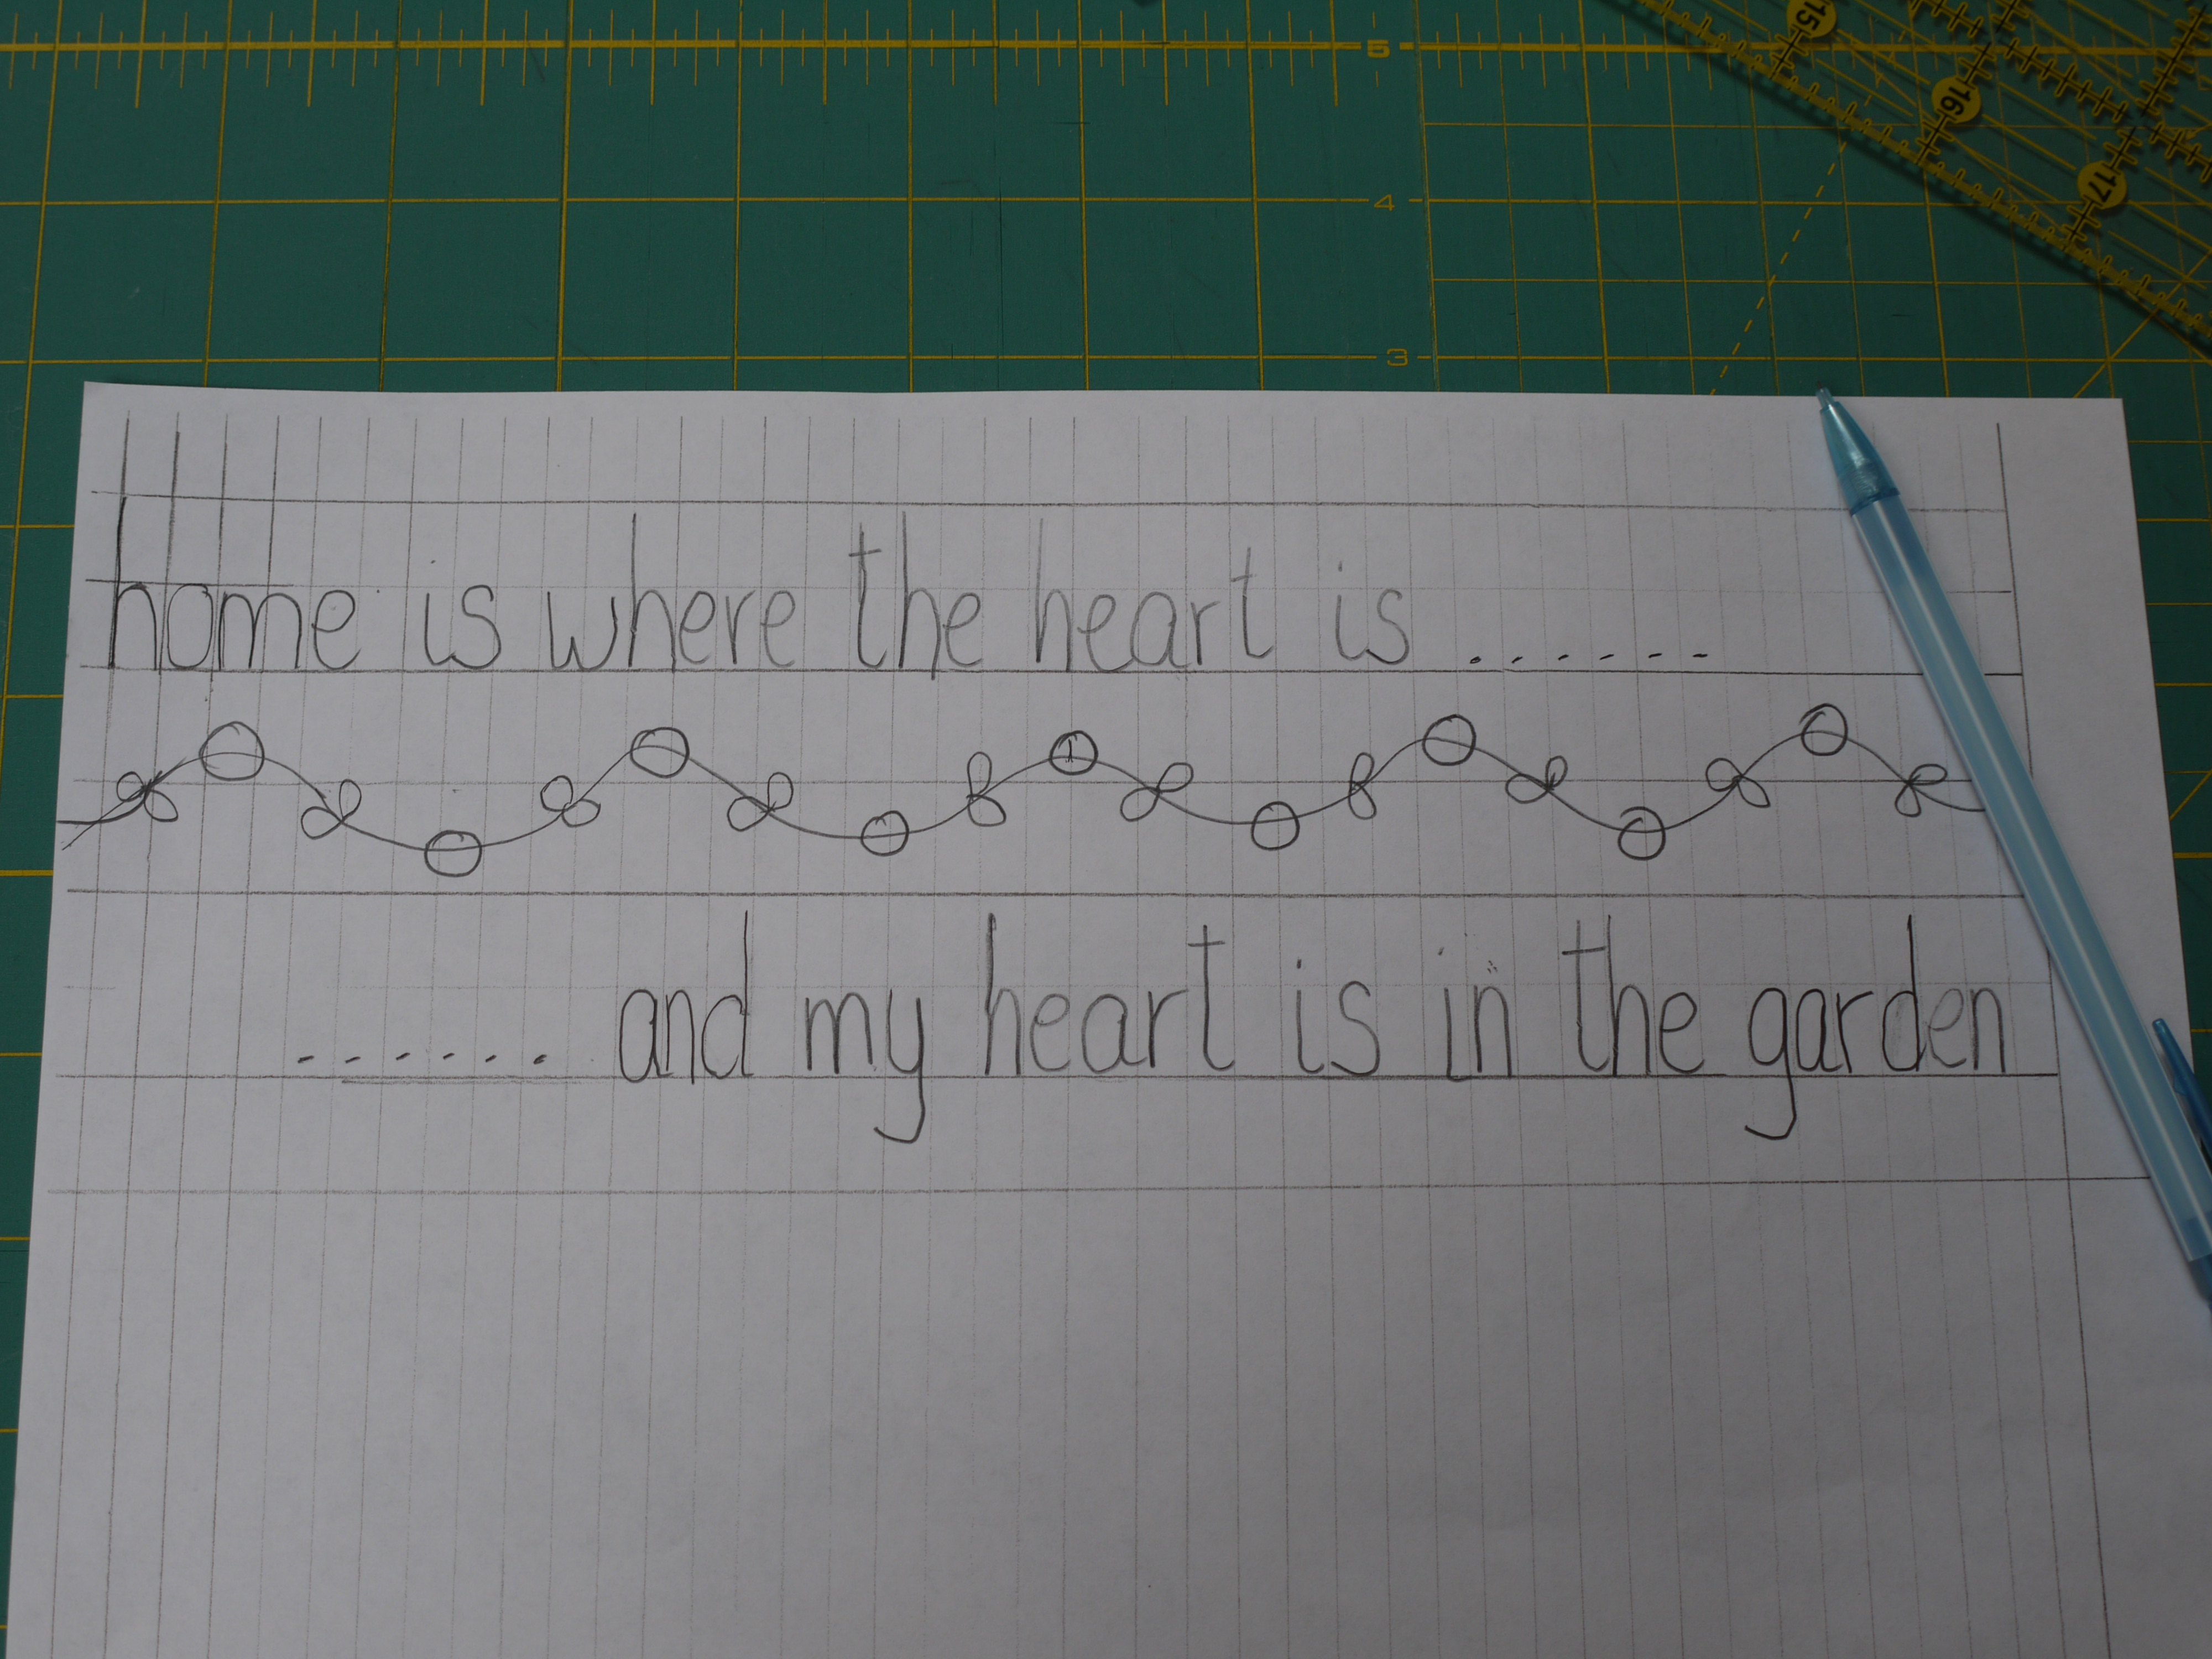 5
15
16
4
17
3
home is where the heart is ......
...... and my heart is in the garden